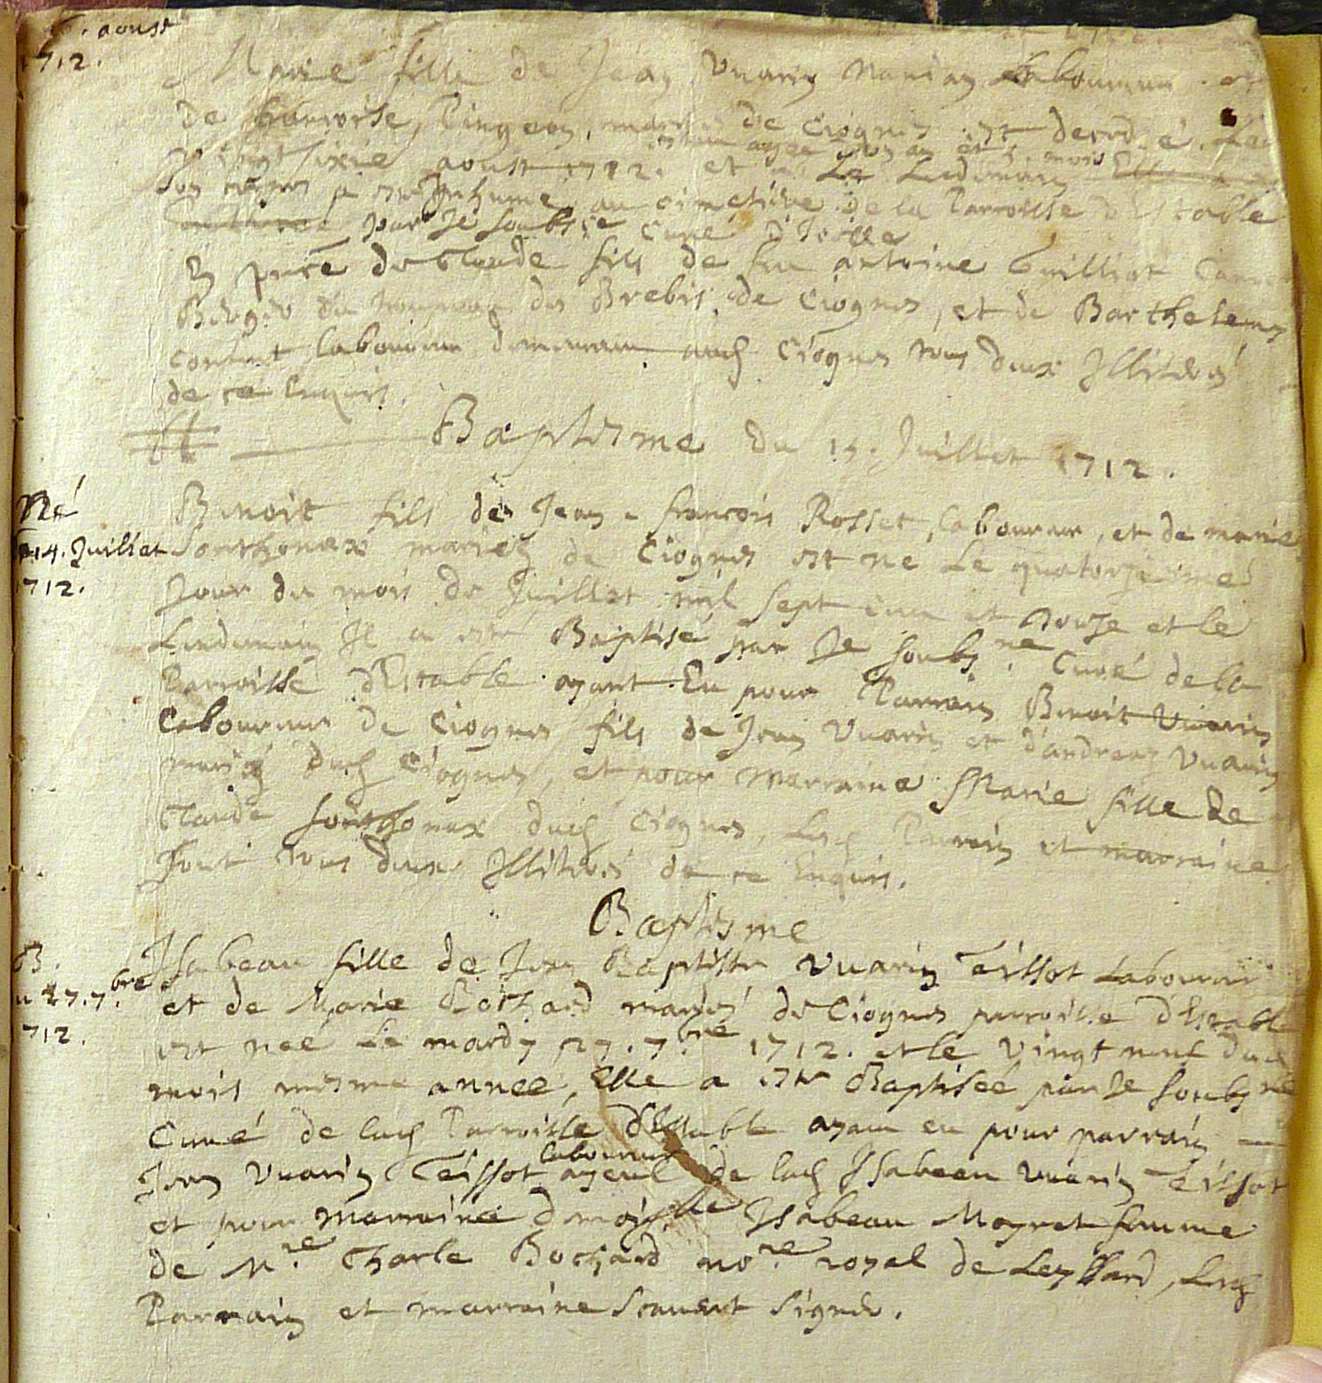 aoust
1712.
Marie fille de Jean Vuarin Laboureur
de francoise Pingeon, mariés de Ciognes est decedée. Le
vingt sixie aoust 1712. et Le Lendemain
son corps a esté Inhumé au cimetiere de la Parroisse d'Estable
par Je soubsné Curé d'Icelle
En pnce de Claude fils de feu antoine
Berger du troupeau des Brebis de Ciognes, et de Barthelemy
laboureur demeurant aud Ciognes tous deux Illiterés
de ce Enquis.
Baptesme du 15. Juillet 1712.
Né
14. Juillet
1712.
Benoit fils de Jean francois Rosset, laboureur, et de marie
Sonthonax mariés de Ciognes est né Le quatorzieme
Jour du mois de Juillet mil sept cens et douze et le
Lendemain Il a esté Baptisé par Je soubsné Curé de la
Parroisse d'Estable ayant Eu pour Parrain Benoit Vuarin
Laboureur de Ciognes fils de Jean Vuarin et d'andreaz Vuarin
mariés dud Ciognes, et pour marraine Marie fille de
Claude Sonthonax dud Ciognes, Lesd Parrain et marraine
sont tous deux Illiterés de ce Enquis.
Baptesme
B.
27. 7.bre
1712.
Isabeau fille de Jean Baptiste Vuarin Teissot Laboureur
et de Marie Bochard mariés de Ciognes parroisse d'Estable
est neé Le mardy 27. 7.bre 1712. et le vingt neuf dud
mois mesme anneé, Elle a esté Baptiseé par Je soubsné
Curé de lad Parroisse d'Estable ayant eu pour parrain
Jean Vuarin Teissot laboureur ayeul de lad Isabeau Vuarin Teissot
et pour marraine demoiselle Isabeau Moyret femme
de M.re Charle Bochard no.re royal de Leyssard, Lesd
Parrain et marraine scavent signer.